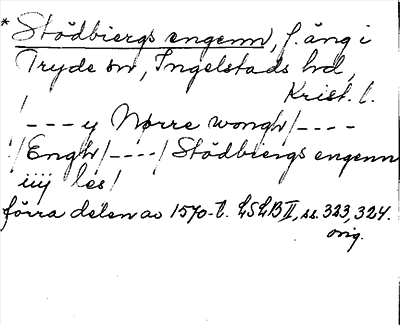 * Stödbiergs engenn, f. äng i
Tryde sn, Ingelstads hd,
Krist. l.
/---y Nørre wongh/----
:/Engh/----/Stödbiergs engenn
iiij les/
förra delen av 1570-t. LSLB II, ss. 323, 324.
orig.